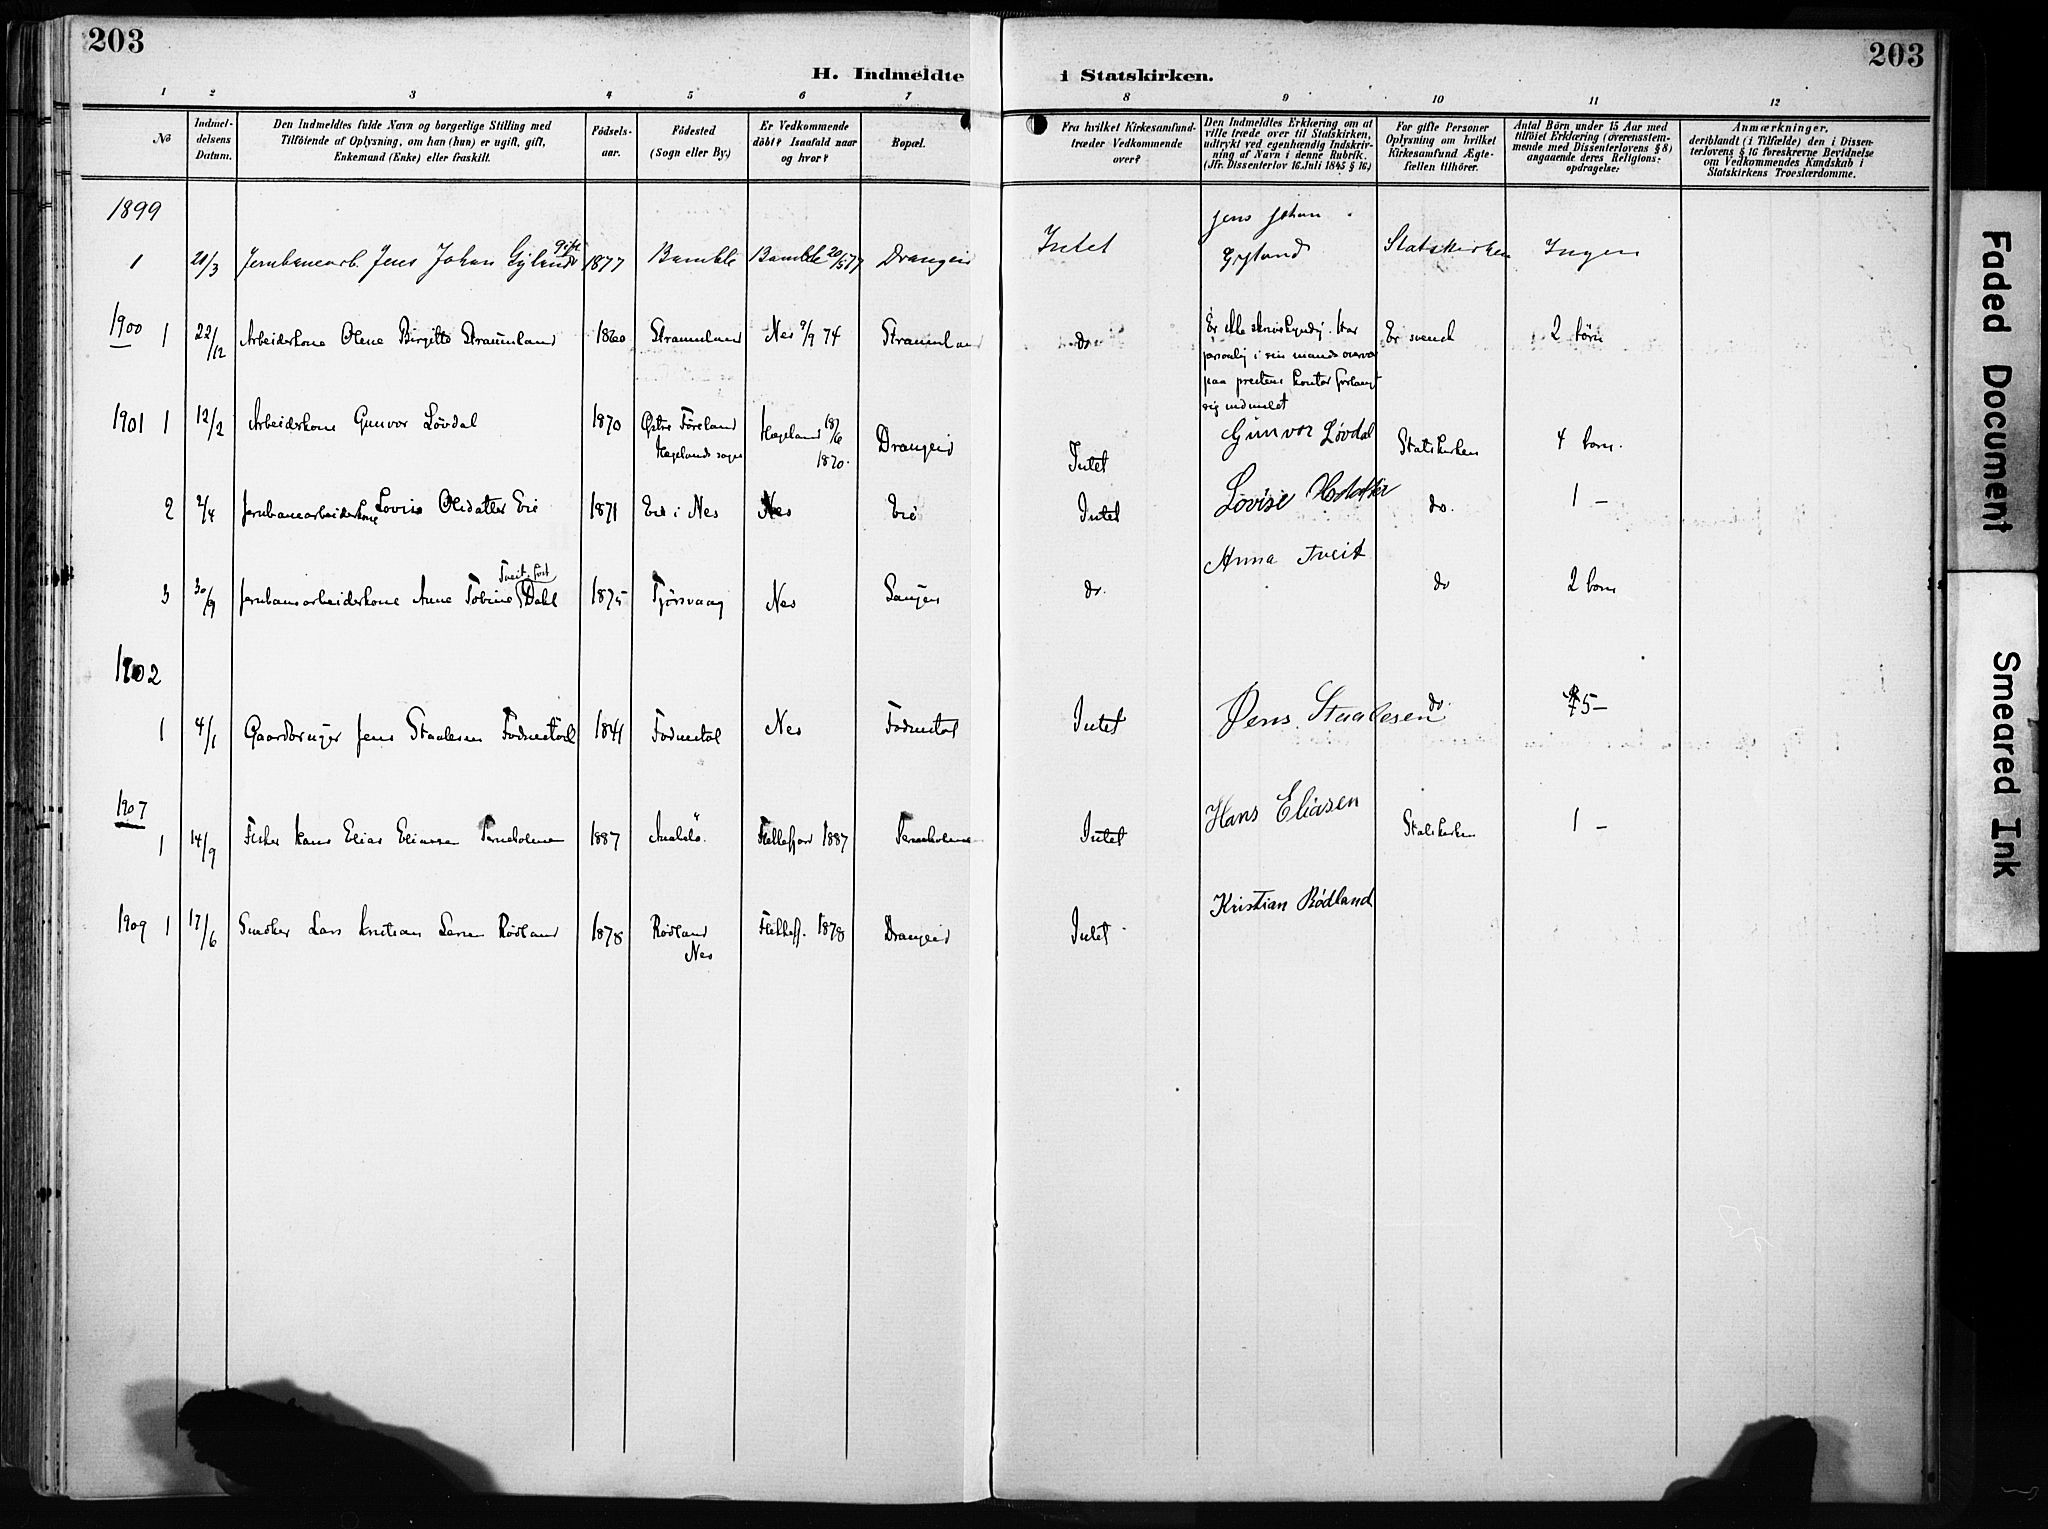 203
203
H. Indmeldte i Statskirken.
1 2 3 4 5 6 7 8 9 10 11 12
No
Indmel-
delsens
Datum.
Den Indmeldtes fulde Navn og borgerlige Stilling med
Tilföiende af Oplysning, om han (hun) er ugift, gift,
Enkemand (Enke) eller fraskilt.
Födsels-
aar.
Födested
(Sogn eller By.)
Er Vedkommende
döbt? Isaafald naar
og hvor?
Bopæl.
Fra hvilket Kirkesamfund
træder Vedkommende
over?
Den Indmeldtes Erklæring om at
ville træde over til Statskirken,
udtrykt ved egenhændig Indskriv-
ning af Navn i denne Rubrik.
(Jfr. Dissenterlov 16. Juli 1845 § 16.)
For gifte Personer
Oplysning om hvilket
Kirkesamfund Ægte-
fællen tilhörer.
Antal Börn under 15 Aar med
tilföiet Erklæring (overensstem-
mende med Dissenterlovens § 8)
angaaende deres Religions-
opdragelse:
Anmærkninger,
deriblandt (i Tilfælde) den i Dissen-
terlovens § 16 foreskrevne Bevidnelse
om Vedkommendes Kundskab i
Statskirkens Troeslærdomme.
1899
gift
1 21/3 Jernbanearb. Jens Johan Gyland 1877 Bamble Bamble 20/5 77 Drangeid Intet Jens Johan
Gyland Statskirken Ingen
1900 1 22/12 Arbeiderkone Olene Birgitte Straumland 1860 Straumland Nes 9/9 74 Straumland do Er ikke skrivekyndig. Har
personlig i sin mands overvær
paa prestens kontor forlangt
sig indmeldt Er svensk 2 börn
1901 1 12/2 Arbeiderkone Gunvor Lövdal 1870 Östre Föreland
Hægelands sogn Hægeland 18/6
1870. Drangeid Intet Gunvor Lövdal Statskirken 4 born.
2 2/4 Jernbanearbeiderkone Lovise Olsdatter Eie 1871 Eie i Nes Nes Eie Intet Lovise do. 1 –
Tveit, föst
3 30/9 Jernbanearbeiderkone Anne Tobine Dahl 1875 Tjörsvaag Nes do. Anna Tveit do 2 born
1902
1 4/1 Gaardbruger Jens Staalesen Fodnestöl 1841 Fodnestöl Nes Fodnestöl Intet Jens Staalesen do. 5 –
1907
1 14/9 Fisker Hans Elias Eliassen Terneholmen 1887 Andabö Flekkefjord 1887 Terneholmen Intet Hans Eliasen Statskirken 1 –
1909 1 17/6 Snedker Lars Kristian Larsen Rödland 1878 Rödland
Nes Flekkefj. 1878 Drangeid Intet Kristian Rödland
Faded Document
Smeared Ink